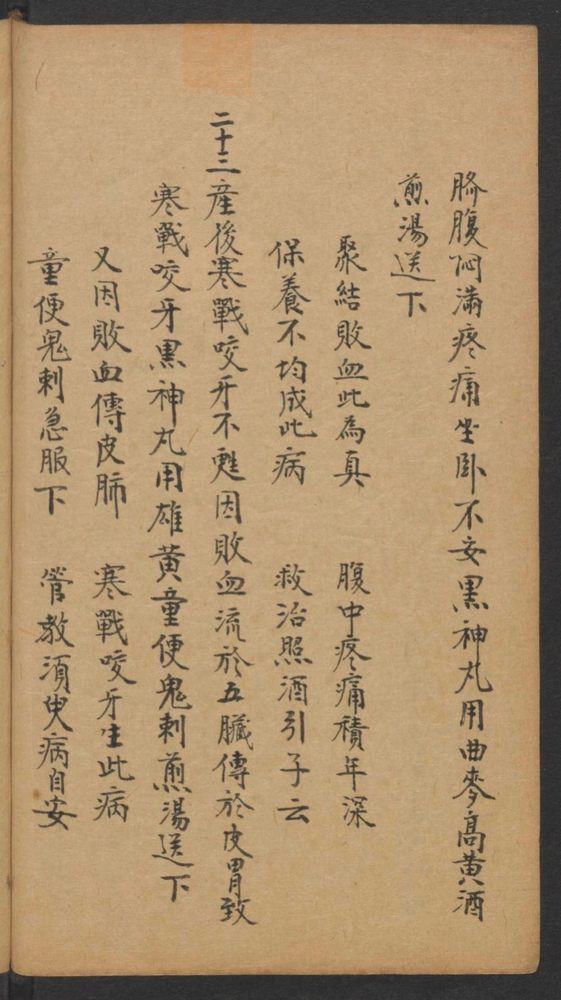 臍腹悶滿疼痛坐卧不安黑神丸用曲麥高黄酒
煎湯送下
聚結敗血此為真　腹中疼痛積年深
保養不均成此病　救治照酒引子云
二十三産後寒戰咬牙不甦因敗血流於五臟傳於皮胃致
寒戰咬牙黑神丸用雄黄童便鬼刺煎湯送下
又因敗血傳皮肺　寒戰咬牙生此病
童便鬼刺急服下　管教須臾病自安